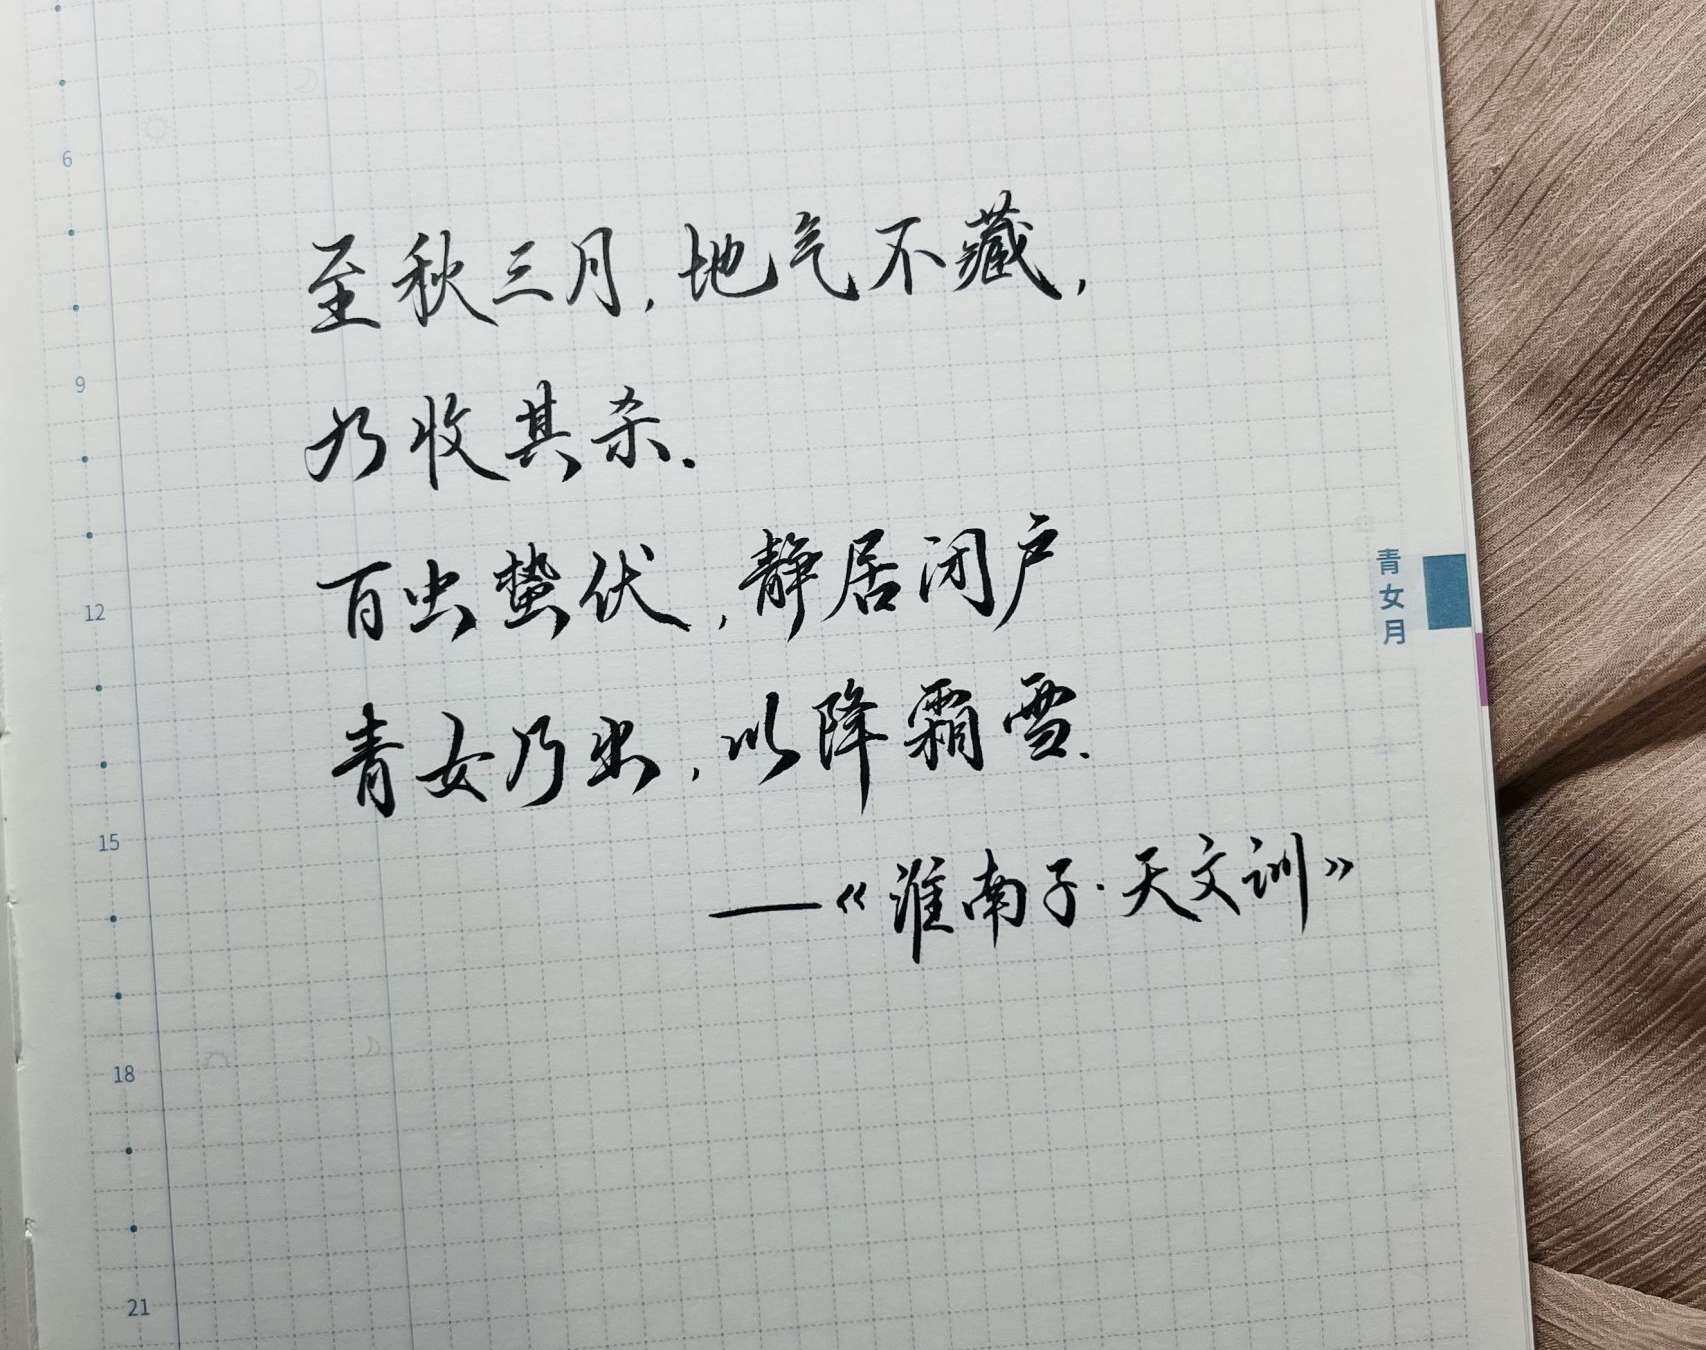 6
9
12
15
18
21
至秋三月,地气不藏,
乃收其杀.
百虫蛰伏,静居闭户
青女乃出,以降霜雪.
——《淮南子·天文训》
青女月